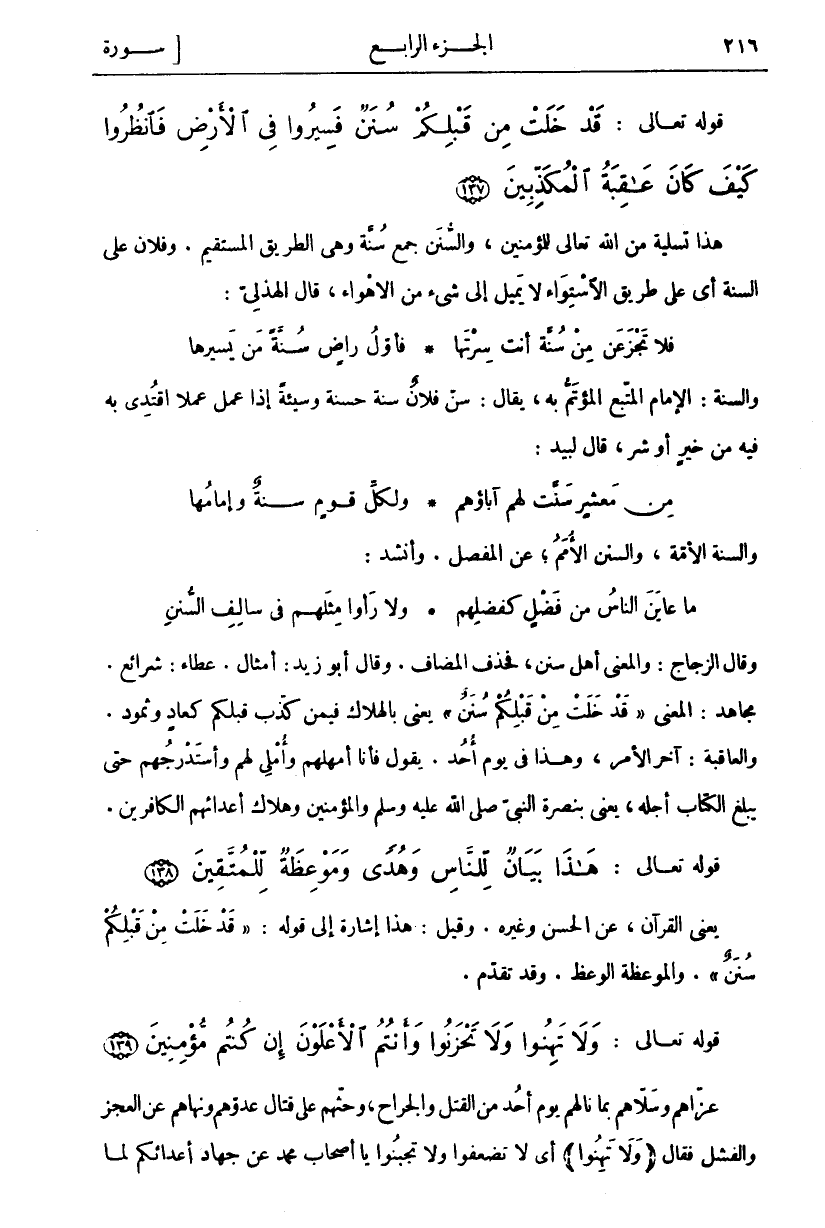 ٢١٦ الجـزء الرابـع [ سـورة
قوله تعـالى : قَدْ خَلَتْ مِن قَبْلِكُمْ سُنَنٌ فَسِيرُوا فِى ٱلْأَرْضِ فَٱنظُرُوا
كَيْفَ كَانَ عَـٰقِبَةُ ٱلْمُكَذِّبِينَ ١٣٧
هذا تسلية من الله تعالى للمؤمنين ، والسُّنَن جمع سُنَّة وهى الطريق المستقيم . وفلان على
السنة أى على طريق الاسْتِوَاء لا يَميل إلى شىء من الاهْواء ، قال الهذلىّ :
فلا تَجْزَعَن مِنْ سُنَّة أنت سِرْتَها * فأوّلُ راضٍ سُـنَّةً مَن يَسيرها
والسنة : الإمام المتّبع المؤتَمُّ به ، يقال : سنّ فلانٌ سنة حسنة وسيئةً إذا عمل عملا اقتُدِى به
فيه من خيرٍ أو شر ، قال لبيد :
مِن مَعشرٍ سَنَّت لهم آباؤهم * ولكلِّ قـوم سـنةٌ وإمامُها
والسنة الأمّة ، والسنن الأُمَمُ ؛ عن المفضل . وأنشد :
ما عايَنَ الناسُ من فَضْلٍ كفضلِهم * ولا رَأوا مِثلَهـم فى سالِفِ السُّننِ
وقال الزجاج : والمعنى أهل سنن ، فحذف المضاف . وقال أبو زيد : أمثال . عطاء : شرائع .
مجاهد : المعنى « قَدْ خَلَتْ مِنْ قَبْلِكُمْ سُنَنٌ » يعنى بالهلاك فيمن كذّب قبلكم كعادٍ وثمود .
والعاقبة : آخر الأمر ، وهـذا فى يوم أُحُد . يقول فأنا أمهلهم وأُمْلِى لهم وأستَدْرِجُهم حتى
يبلغ الكتاب أجله ، يعنى بنصرة النبىّ صلى الله عليه وسلم والمؤمنين وهلاك أعدائهم الكافرين .
قوله تعـالى : هَـٰذَا بَيَانٌ لِّلنَّاسِ وَهُدًى وَمَوْعِظَةٌ لِّلْمُتَّقِينَ ١٣٨
يعنى القرآن ، عن الحسن وغيره . وقيل : هذا إشارة إلى قوله : « قَدْ خَلَتْ مِنْ قَبْلِكُمْ
سُنَنٌ » . والموعظة الوعظ . وقد تقدّم .
قوله تعـالى : وَلَا تَهِنُوا وَلَا تَحْزَنُوا وَأَنتُمُ ٱلْأَعْلَوْنَ إِن كُنتُم مُّؤْمِنِينَ ١٣٩
عزّاهم وسَلّاهم بما نالهم يوم أُحُد من القتل والجراح ، وحثّهم على قتال عدوّهم ونهاهم عن العجز
والفشل فقال ﴿ وَلَا تَهِنُوا ﴾ أى لا تضعفوا ولا تجبُنُوا يا أصحاب محمد عن جهاد أعدائكم لمـا